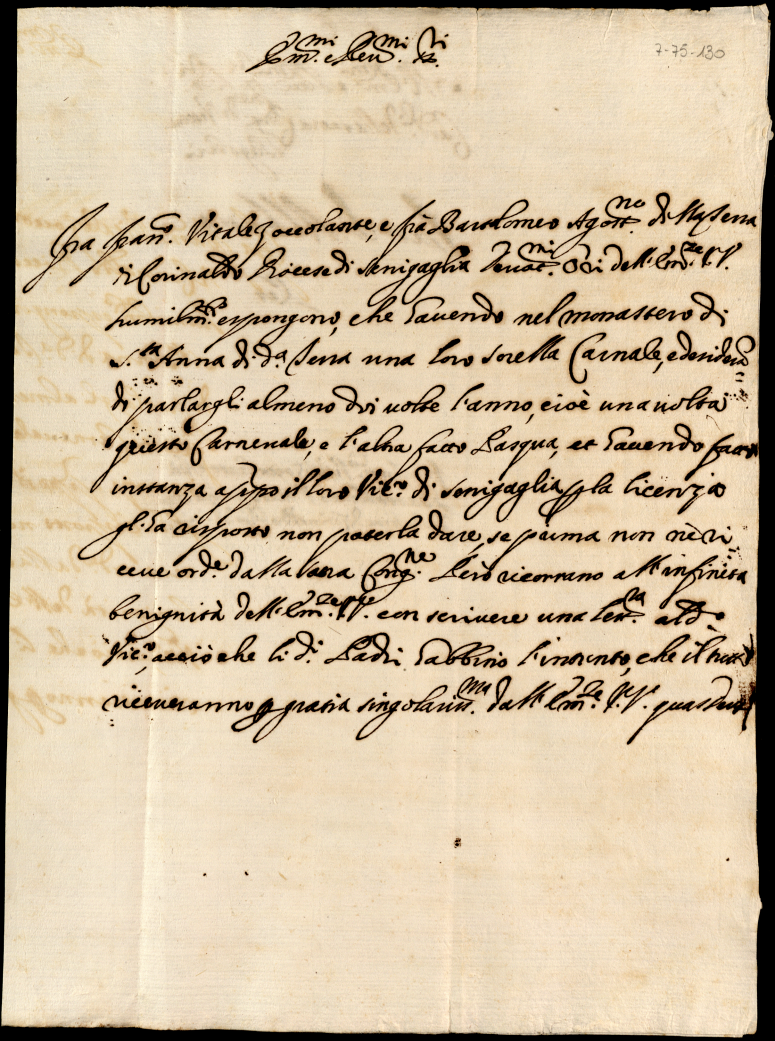 7-75-130
Em.mi e Reu.mi SS.ri
fra fran.co Vitale Zoccolante, e frà Bartolomeo Agost.no di Serra
di Corinaldo Diocese di Senigaglia deuot.mi Ori dell' Em.ze VV.
humilm.te espongono, che hauendo nel monastero di
S.ta Anna di d.a Serra una loro sorella Carnale, e desidera
di parlargli almeno doi uolte l'anno, cioè una uolta
questo Carneuale, e l'altra fatto Pasqua, et hauendo fatto
instanza appo il loro Vic.o di Senigaglia p la licenza
gl'hà risposto non poterla dare, se prima non nè ri
ceue ord.e dalla sacra Cong.ne Però ricorrano all' infinita
benignità dell' Em.ze VV. con scriuere una lett.ra al d.o
Vic.o, acciò che li d.i Padri habbino l'intento, che il tutto
riceueranno p gratia singolariss.ma dall' Em.ze VV. quas Deus